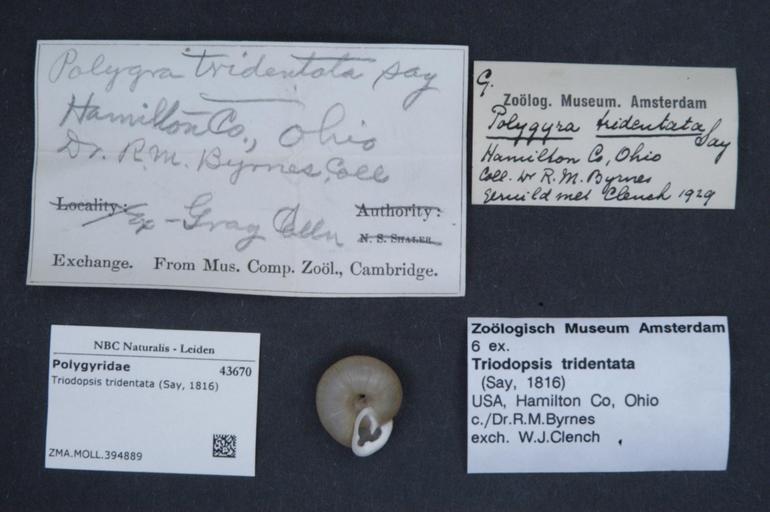 Polygra tridentata Say
Hamilton Co., Ohio
Dr. R.M. Byrnes, Coll
Locality: Authority:
ex - Gray Colln
N. S. SHALER.
Exchange. From Mus. Comp. Zoöl., Cambridge.
G.
Zoölog. Museum. Amsterdam
Polygyra tridentata Say
Hamilton Co, Ohio
Coll. Dr R.M. Byrnes
geruild met Clench 1929
NBC Naturalis - Leiden
Polygyridae 43670
Triodopsis tridentata (Say, 1816)
ZMA.MOLL.394889
Zoölogisch Museum Amsterdam
6 ex.
Triodopsis tridentata
(Say, 1816)
USA, Hamilton Co, Ohio
c./Dr.R.M.Byrnes
exch. W.J.Clench